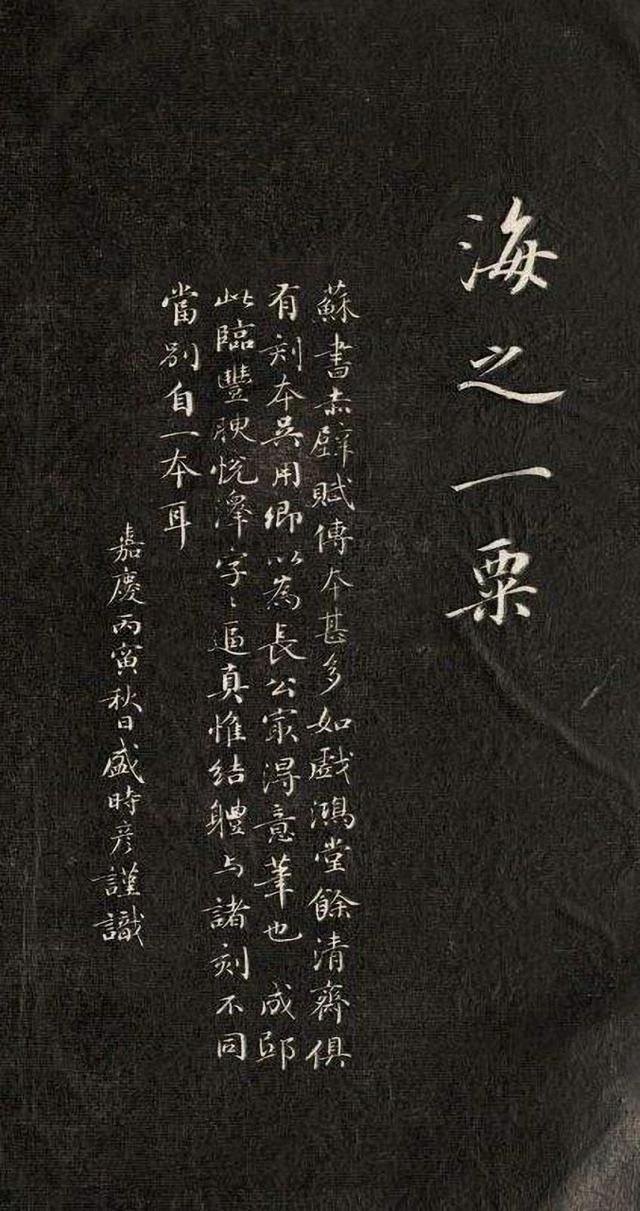 海之一粟
蘇書赤壁賦傳本甚多如戲鴻堂餘清齋俱
有刻本吳用卿以為長公最得意筆也 成邸
此臨豐腴悅澤字〻逼真惟結體与諸刻不同
當別自一本耳
嘉慶丙寅秋日盛時彦謹識